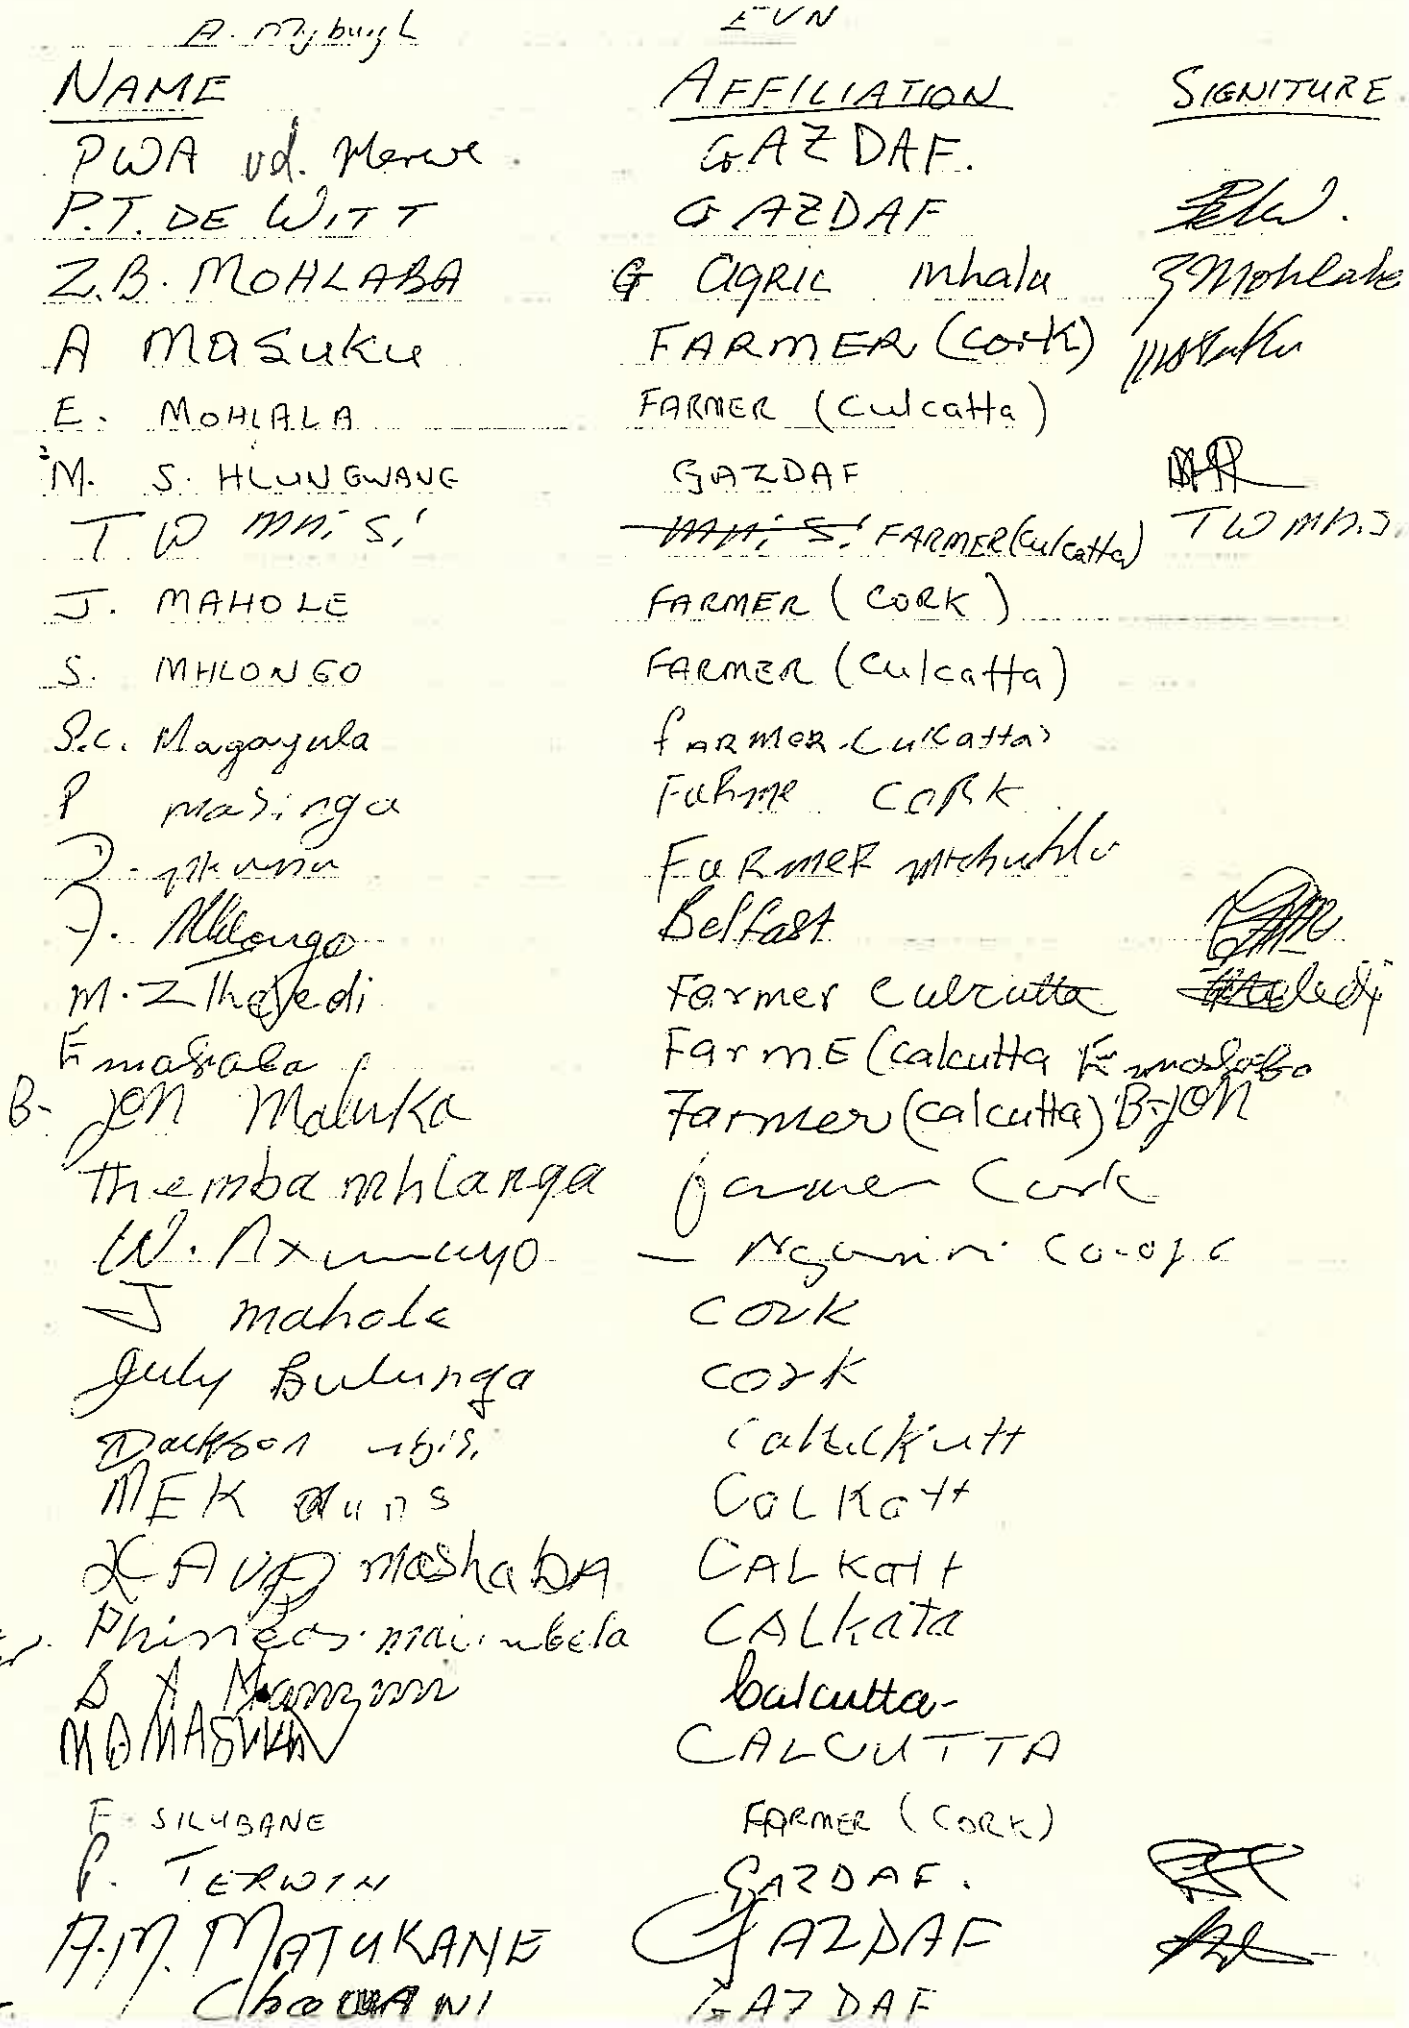 A. Myburgh EVN
NAME AFFILIATION SIGNITURE
PWA vd. Merwe. GAZDAF.
P.T. DE WITT GAZDAF
Z.B. MOHLABA G Agric Mhala ZMohlaba
A MASUKU FARMER (Cork) Masuku
E. MOHLALA FARMER (Culcatta)
M. S. HLUNGWANE GAZDAF
T W mnisi mnisi FARMER (Culcatta) T W mnisi
J. MAHOLE FARMER (CORK)
S. MHLONGO FARMER (Culcatta)
S.C. Magagula FARMER Culcatta
P masinga Fahme CORK
FaRmeR
J. Mhlongo Belfast
M. Z Farmer Culcutta
E mašaba FarmE (calcutta E mašaba
B- JON Maluka Farmer (calcutta) B-JON
Themba mhlanga farmer Cork
W. Nxumayo — Co-op
J mahole CORK
July Bulunga CORK
MEK CalKatt
mashabA CALKatt
Phineas CALKata
B A Calcutta
MASUKU CALCUTTA
F SILUBANE FARMER (CORK)
P. TERWIN GAZDAF.
A.M. MATUKANE GAZDAF
GAZDAF